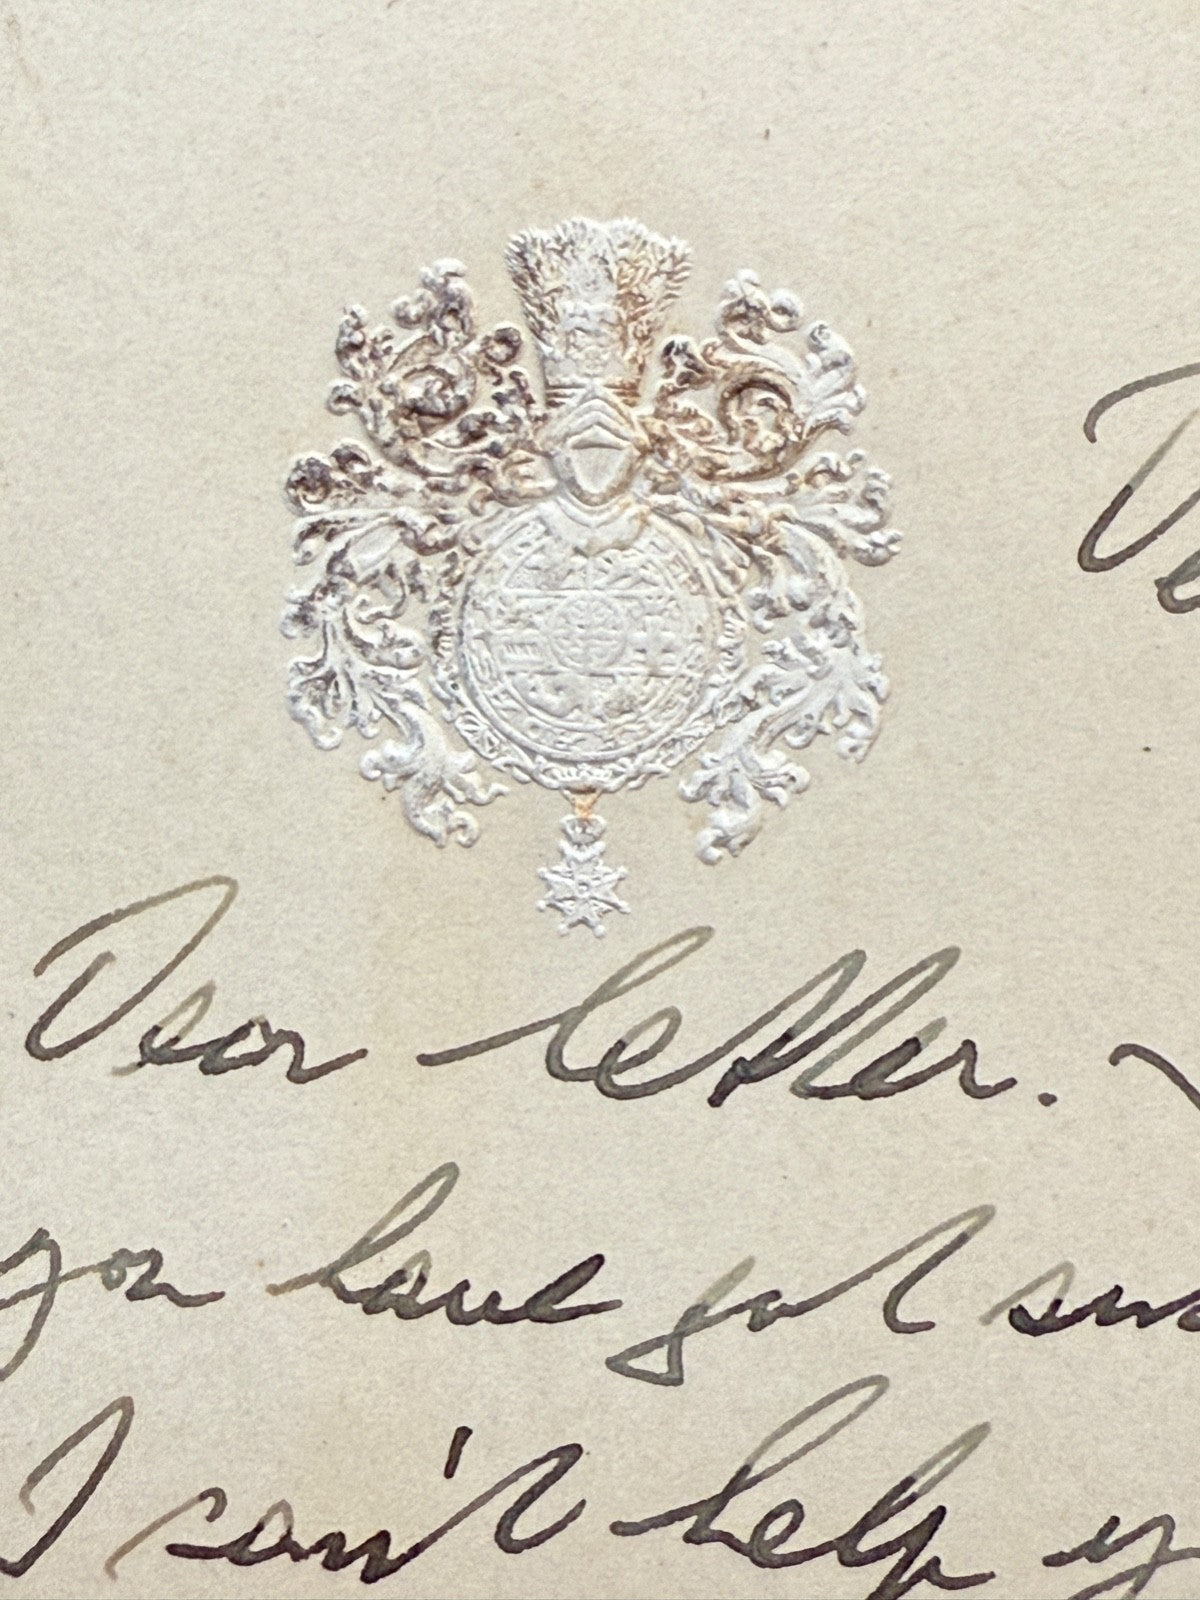 Dear letter.
you have got
I can't help